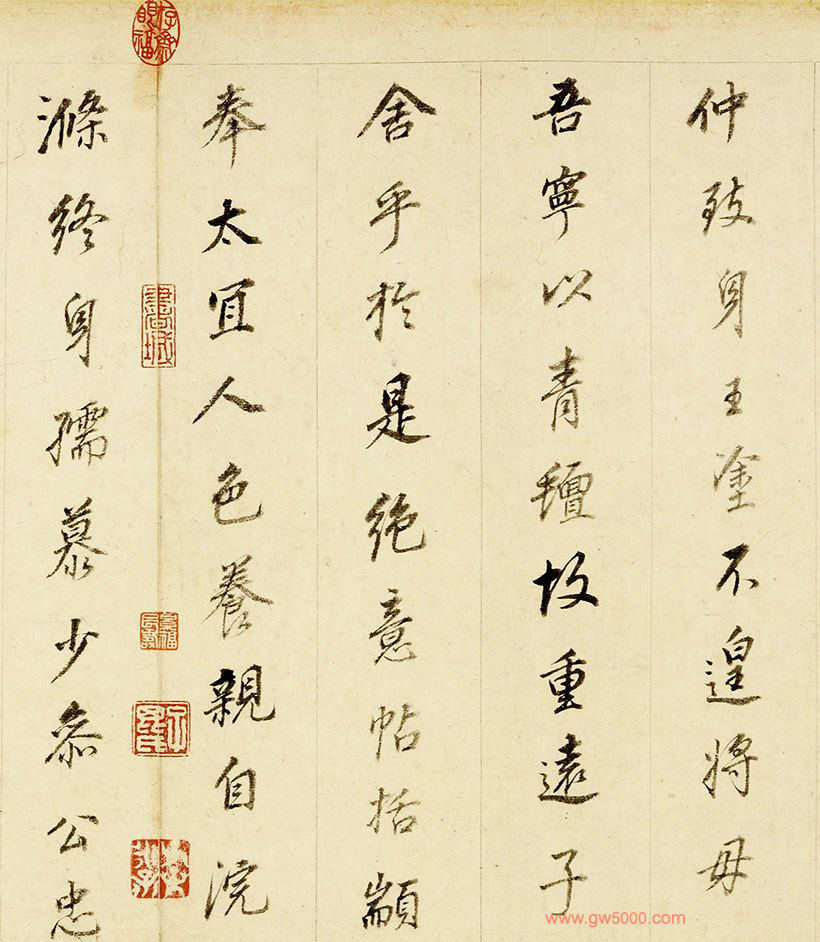 仲致身王塗不遑將毋
吾寧以青氊故重遠子
舍乎於是絕意帖括顓
奉太宜人色養親自浣
滌終身孺慕少叅公忠
www.gw5000.com